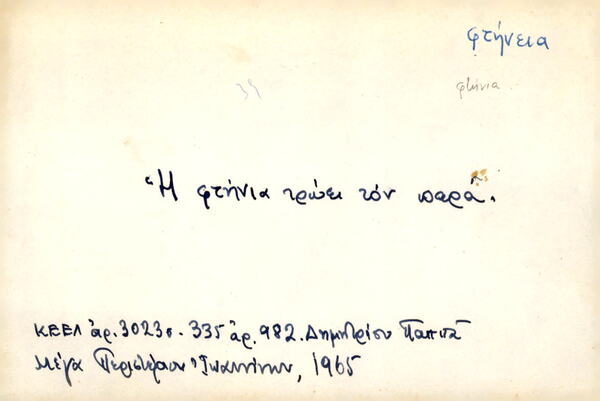 φτήνεια
φτήνια
39
Ἡ φτήνια τρώει τόν παρᾶ.
ΚΕΕΛ ἀρ. 3023 σ. 335 ἀρ. 982. Δημητρίου Παππᾶ
Μέγα Περιστέριον Ἰωαννίνων, 1965